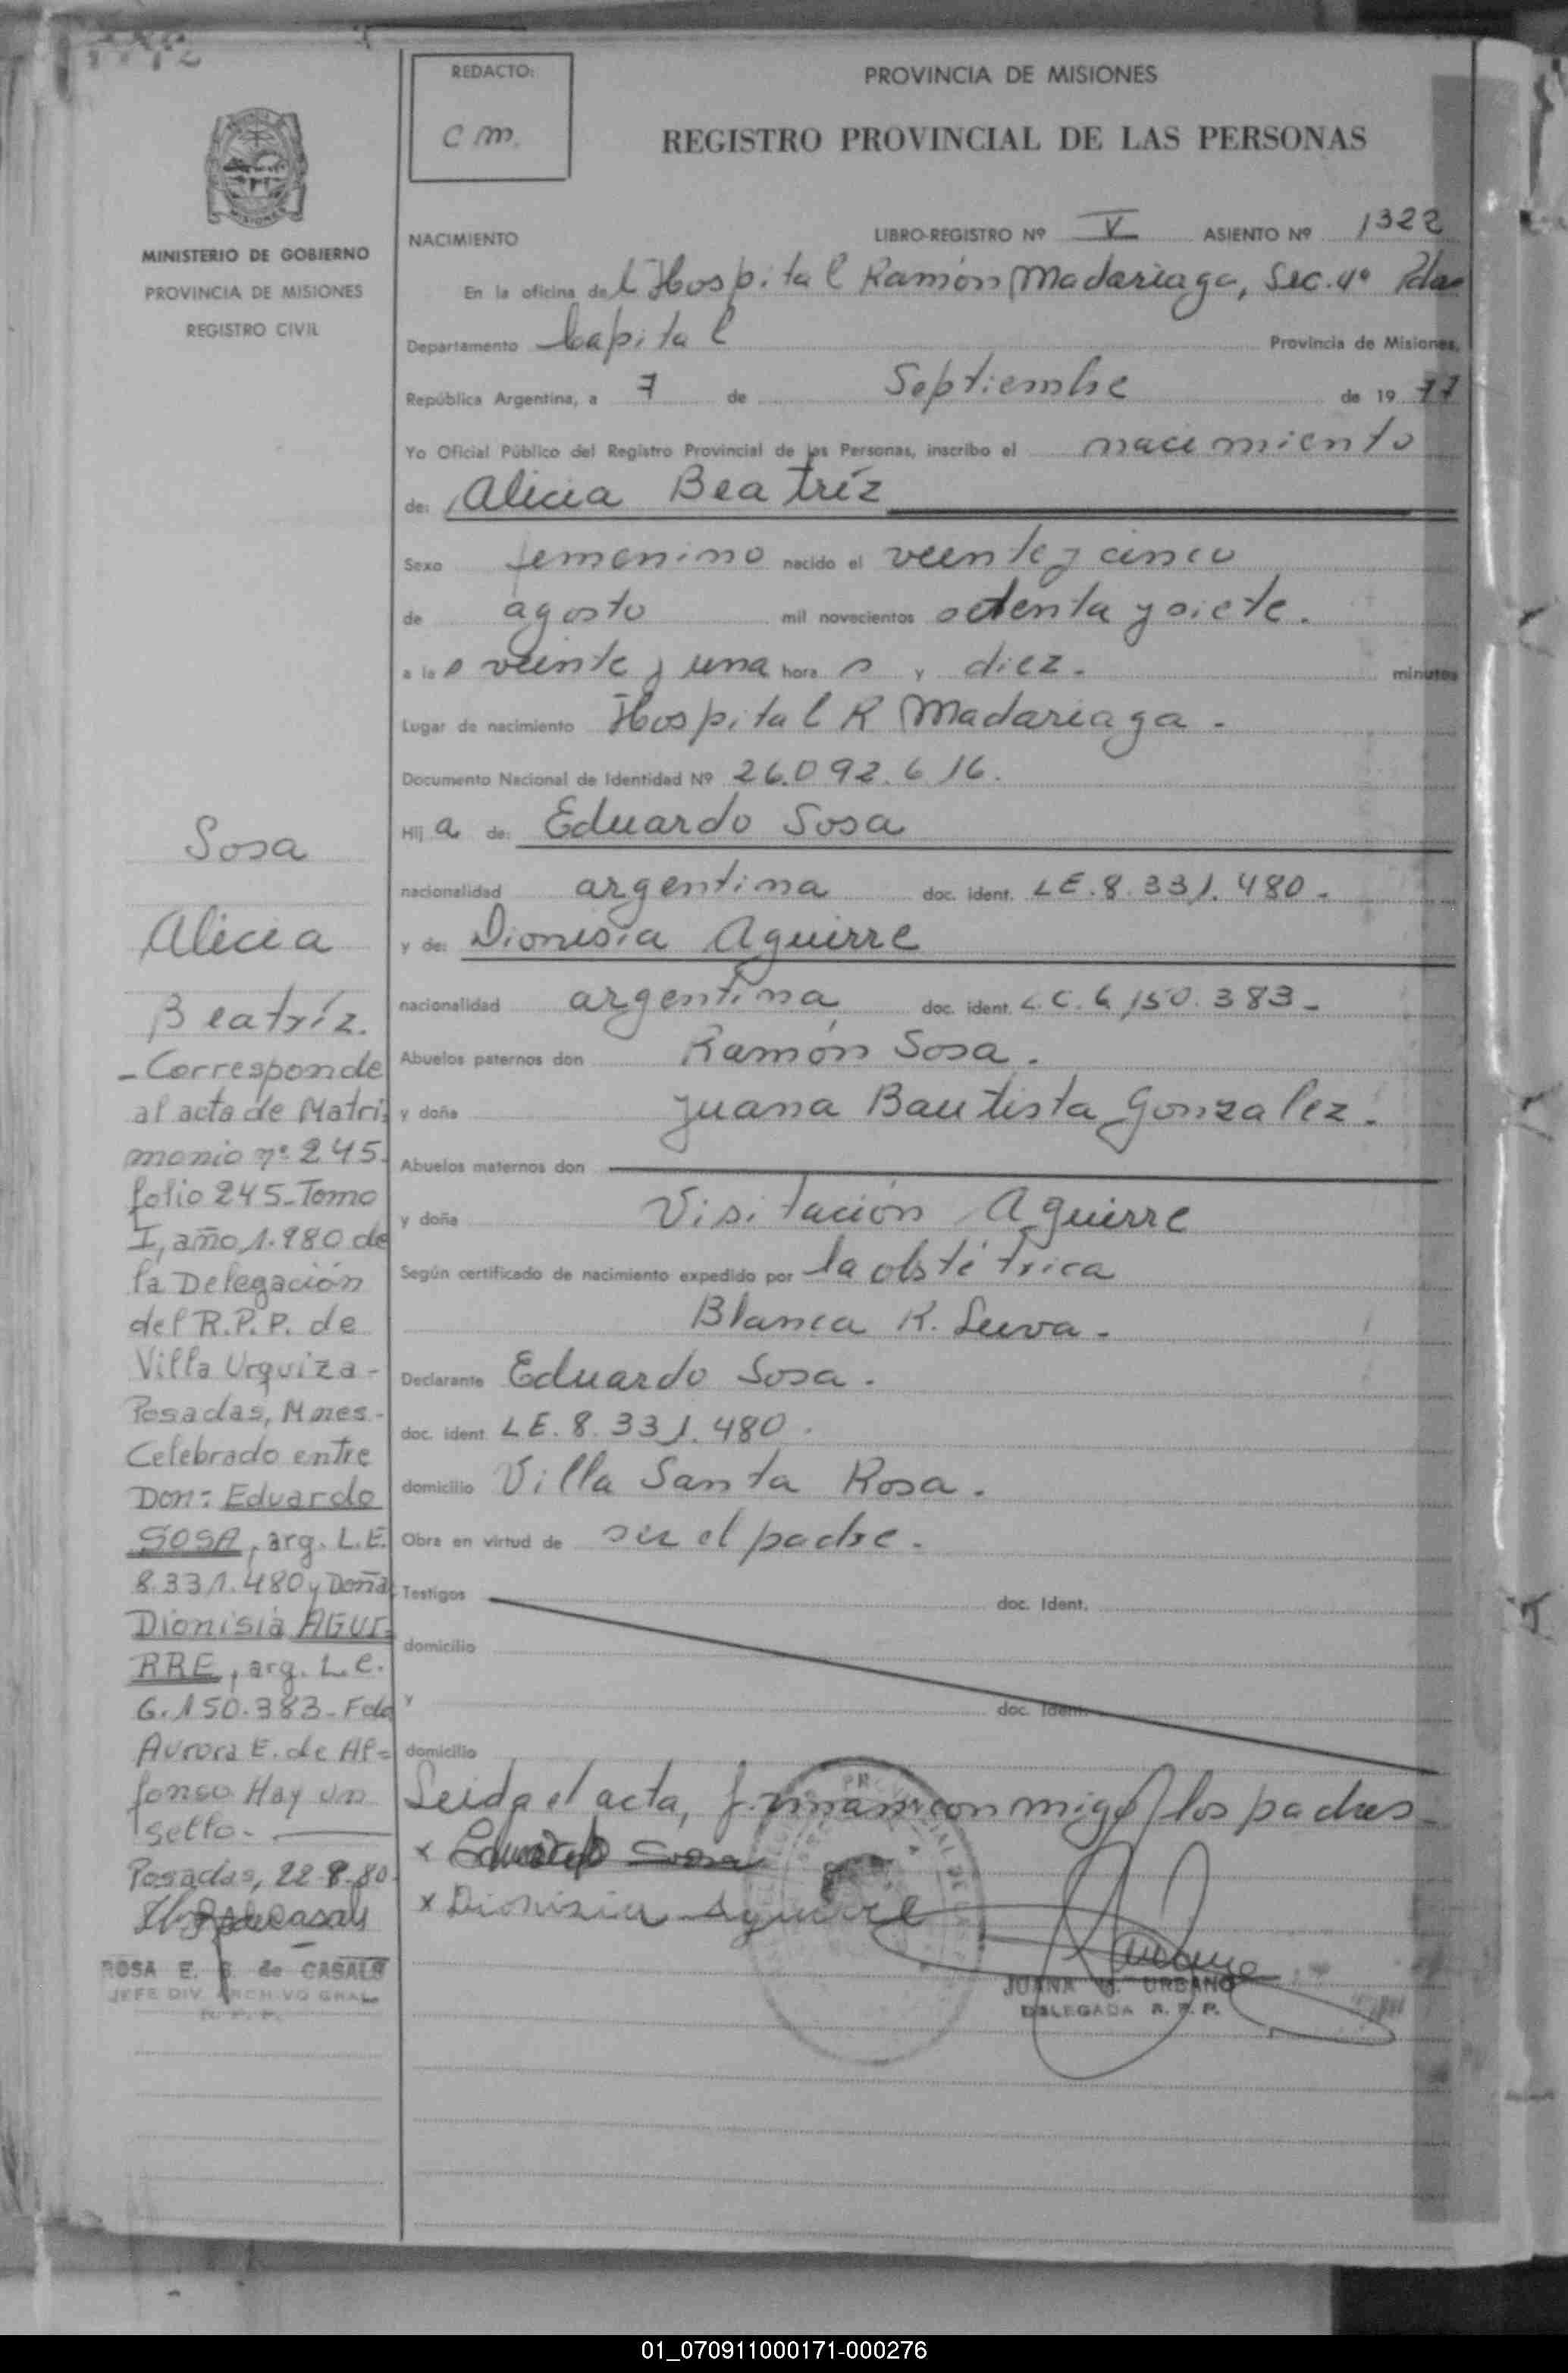 REDACTO:
C M.
PROVINCIA DE MISIONES
REGISTRO PROVINCIAL DE LAS PERSONAS
MISIONES
MINISTERIO DE GOBIERNO
PROVINCIA DE MISIONES
REGISTRO CIVIL
NACIMIENTO LIBRO-REGISTRO Nº V ASIENTO Nº 1322
En la oficina del Hospital Ramón Madariaga, Sec. 4º Pdas
Departamento Capital Provincia de Misiones,
República Argentina, a 7 de Septiembre de 19 77
Yo Oficial Público del Registro Provincial de las Personas, inscribo el nacimiento
de: Alicia Beatríz
Sexo femenino nacido el veinte y cinco
de agosto mil novecientos setenta y siete.
a las veinte y una hora s y diez. minutos
Lugar de nacimiento Hospital R Madariaga.
Documento Nacional de Identidad Nº 26.092.616.
Hij a de: Eduardo Sosa
nacionalidad argentina doc. ident. LE. 8.331.480.
y de: Dionisia Aguirre
nacionalidad argentina doc. ident. L.C. 6.150.383.
Abuelos paternos don Ramón Sosa.
y doña Juana Bautista Gonzalez.
Abuelos maternos don
y doña Visitación Aguirre
Según certificado de nacimiento expedido por la obstétrica
Blanca R. Leiva.
Declarante Eduardo Sosa.
doc. ident. LE. 8.331.480.
domicilio Villa Santa Rosa.
Obra en virtud de ser el padre.
Testigos doc. Ident.
domicilio
y doc. Ident.
domicilio
Leida el acta, firman conmigo los padres
x Eduardo Sosa
x Dionisia Aguirre
JUANA URBANO
DELEGADA R. P. P.
Sosa
Alicia
Beatríz.
- Corresponde
al acta de Matri
monio nº 245.
folio 245-Tomo
I, año 1.980 de
la Delegación
del R.P.P. de
Villa Urquiza-
Posadas, Mnes-
Celebrado entre
Don: Eduardo
SOSA, arg. L.E.
8.331.480 y Doña
Dionisia AGUI=
RRE, arg. L.C.
6.150.383-Fdo
Aurora E. de Al=
fonso. Hay un
sello.-
Posadas, 22-8-80.
ROSA E. de CASALS
JEFE DIV. ARCHIVO GRAL.
R. P. P.
01_070911000171-000276